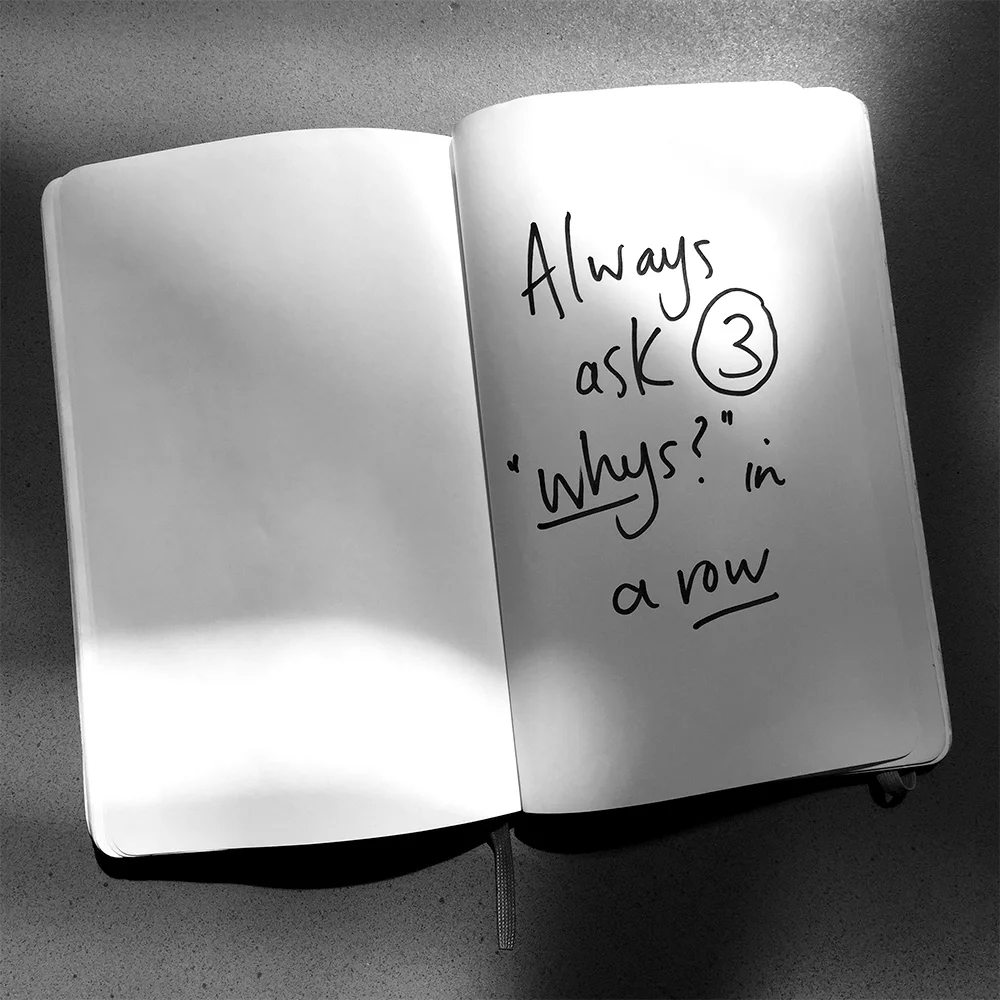 Always
ask 3
"whys?" in
a row